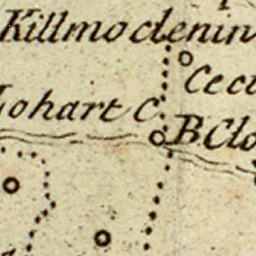 Killmoclenin
Cect
Lohart C.
B Clo